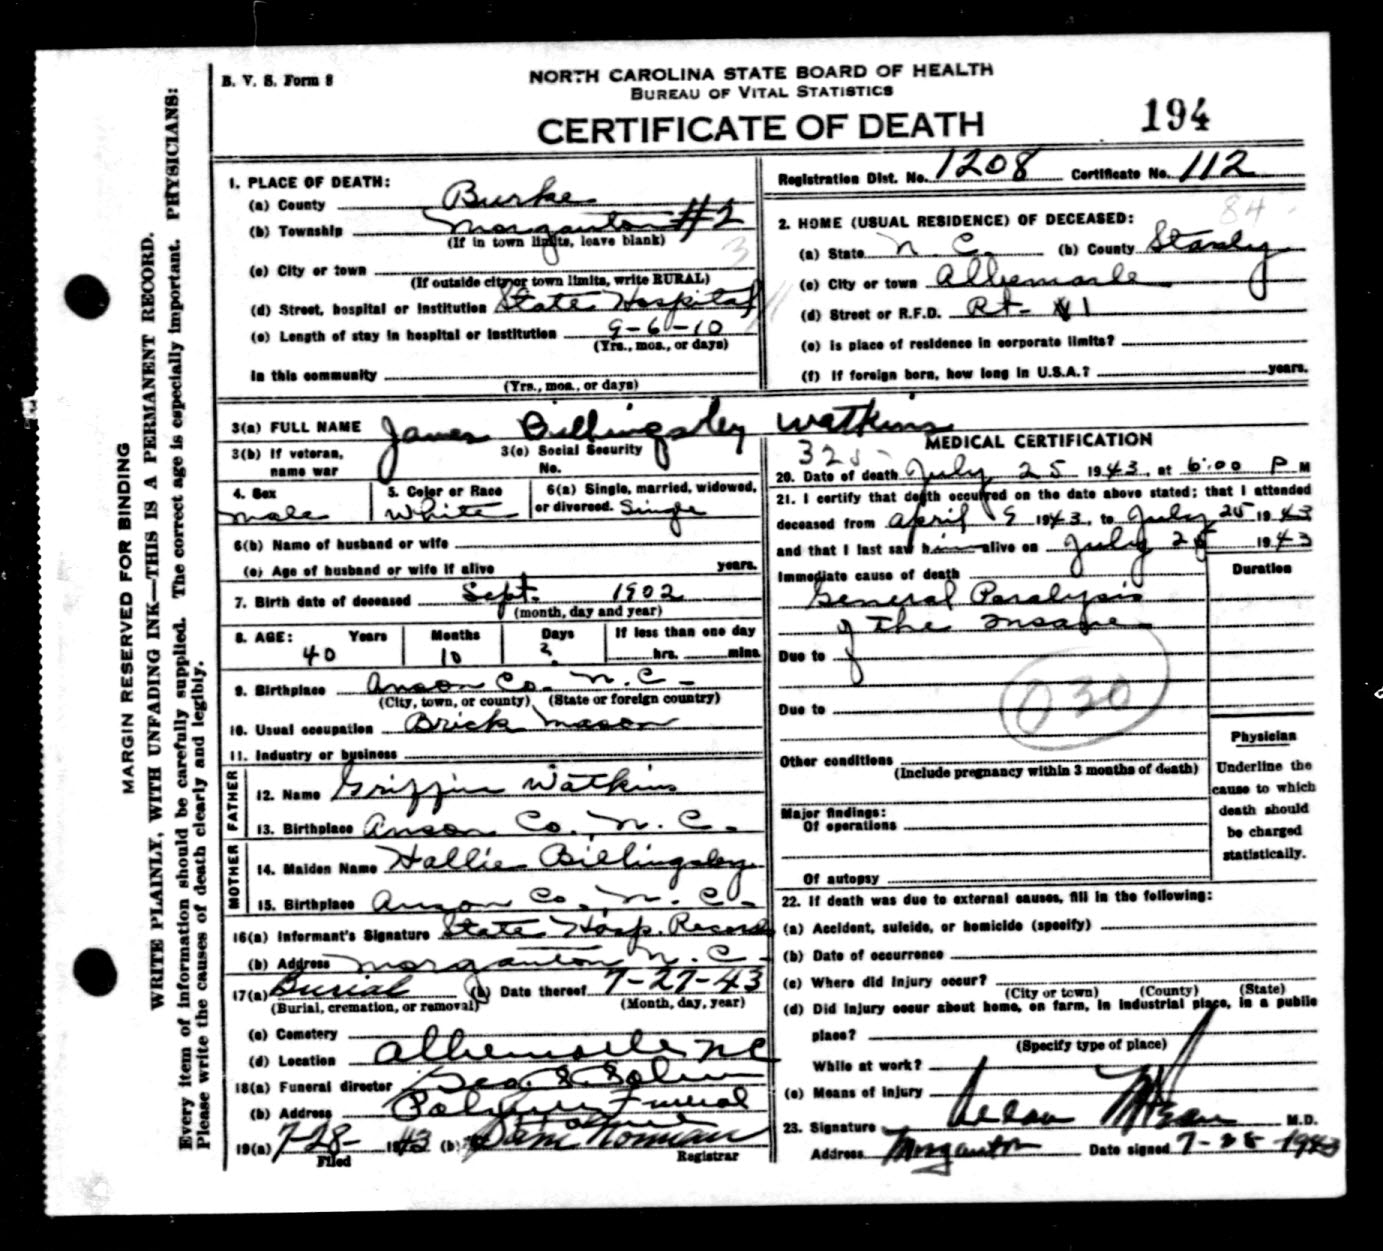 B. V. S. Form 8
NORTH CAROLINA STATE BOARD OF HEALTH
BUREAU OF VITAL STATISTICS
CERTIFICATE OF DEATH
194
Registration Dist. No. 1208 Certificate No. 112
1. PLACE OF DEATH:
(a) County Burke
(b) Township Morganton #2
(If in town limits, leave blank)
3
(c) City or town
(If outside city or town limits, write RURAL)
(d) Street, hospital or institution State Hospital
(e) Length of stay in hospital or institution 9-6-10
(Yrs., mos., or days)
In this community
(Yrs., mos., or days)
84
2. HOME (USUAL RESIDENCE) OF DECEASED:
(a) State N. C. (b) County Stanly
(c) City or town Albemarle
(d) Street or R.F.D. Rt- 1
(e) Is place of residence in corporate limits?
(f) If foreign born, how long in U.S.A.? years.
3(a) FULL NAME James Billingsley Watkins
3(b) If veteran, name war
3(c) Social Security No.
4. Sex male
5. Color or Race White
6(a) Single, married, widowed, or divorced. Single
6(b) Name of husband or wife
(c) Age of husband or wife if alive years.
7. Birth date of deceased Sept. 1902
(month, day and year)
8. AGE: Years Months Days If less than one day
40 10 ? hrs. mins.
9. Birthplace Anson Co. N. C.
(City, town, or county) (State or foreign country)
10. Usual occupation Brick Mason
11. Industry or business
FATHER
12. Name Griffin Watkins
13. Birthplace Anson Co., N. C.
MOTHER
14. Maiden Name Hallie Billingsley
15. Birthplace Anson Co., N. C.
16(a) Informant's Signature State Hosp. Records
(b) Address Morganton N. C.
17(a) Burial (b) Date thereof 7-27-43
(Burial, cremation, or removal) (Month, day, year)
(c) Cemetery
(d) Location Albemarle NC
18(a) Funeral director Geo. S.
(b) Address Funeral
19(a) 7-28- 1943 (b) Norman
Filed Registrar
MEDICAL CERTIFICATION
325
20. Date of death July 25 1943, at 6:00 P M
21. I certify that death occurred on the date above stated; that I attended
deceased from April 9 1943, to July 25 1943
and that I last saw him alive on July 25 1943
Immediate cause of death Duration
General Paralysis
of the Insane
Due to
030
Due to
Other conditions
(Include pregnancy within 3 months of death)
Major findings:
Of operations
Of autopsy
Physician
Underline the
cause to which
death should
be charged
statistically.
22. If death was due to external causes, fill in the following:
(a) Accident, suicide, or homicide (specify)
(b) Date of occurrence
(c) Where did injury occur?
(City or town) (County) (State)
(d) Did injury occur about home, on farm, in industrial place, in a public
place?
(Specify type of place)
While at work?
(e) Means of injury
23. Signature M.D.
Address Morganton Date signed 7-28-1943
MARGIN RESERVED FOR BINDING
WRITE PLAINLY, WITH UNFADING INK—THIS IS A PERMANENT RECORD.
Every item of information should be carefully supplied. The correct age is especially important. PHYSICIANS:
Please write the causes of death clearly and legibly.